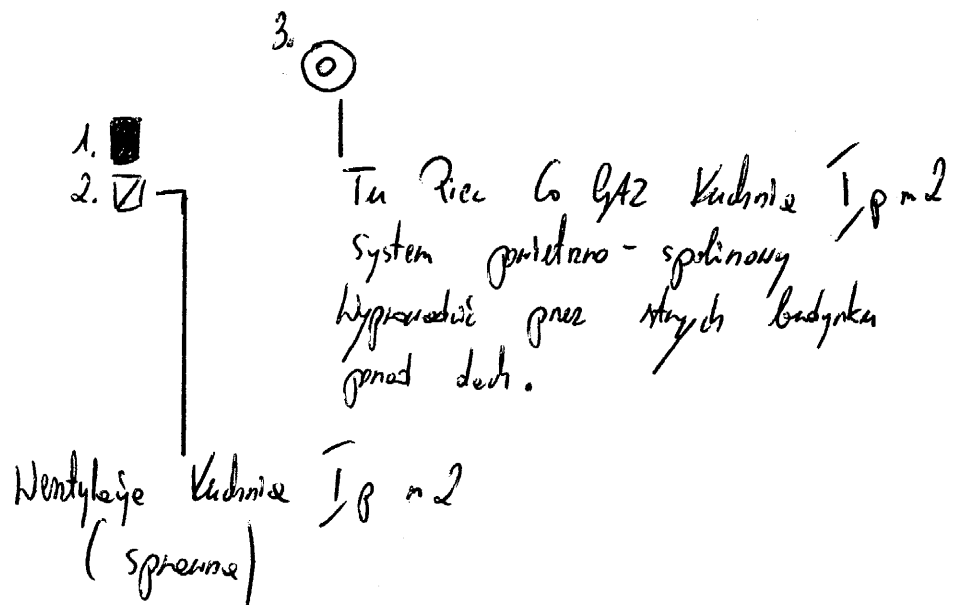 3.
1.
2.
Tu Piec Co GAZ Kuchnia I p m 2
System powietrzno - spalinowy
Wyprowadzić przez strych budynku
ponad dach.
Wentylacja Kuchnia I p m 2
(sprawna)